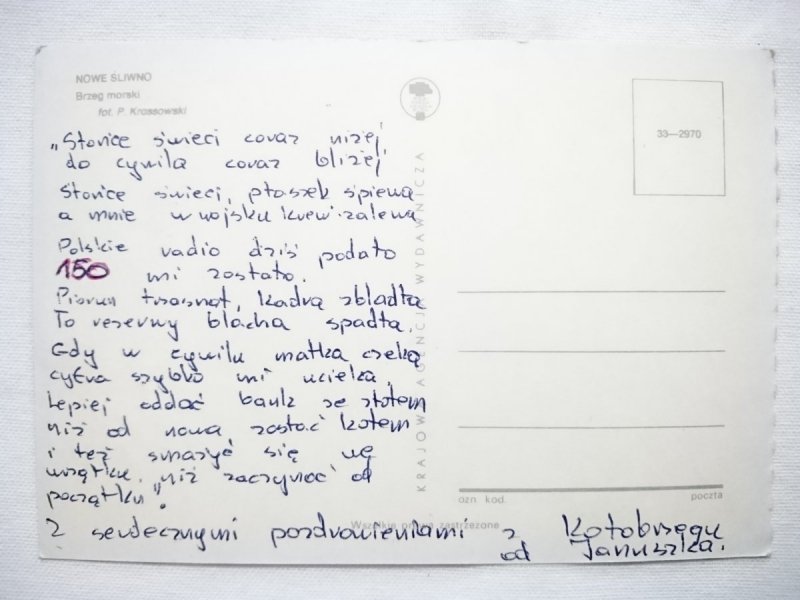 NOWE ŚLIWNO
Brzeg morski
fot. P. Krassowski
33—2970
„Słońce świeci coraz niżej
do cywila coraz bliżej
Słońce świeci, ptaszek śpiewa
a mnie w wojsku krew zalewa
Polskie radio dziś podało
150 mi zostało.
Piorun trzasnął, kadra zbladła
To rezerwy blacha spadła.
Gdy w cywilu matka czeka
cyfra szybko mi ucieka.
Lepiej oddać bank ze złotem
niż od nowa zostać kotem
i też smażyć się we
wrzątku niż zaczynać od
początku".
Z serdecznymi pozdrowieniami z Kołobrzegu
od Januszka.
KRAJOWA AGENCJA WYDAWNICZA
Wszelkie prawa zastrzeżone
ozn. kod.
poczta